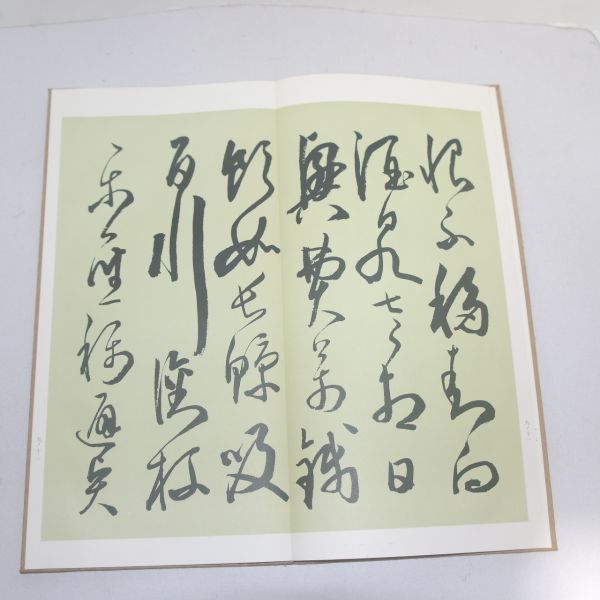 恨不移封向
酒泉左相日
興費萬錢
飲如長鯨吸
百川銜杯
樂聖稱避賢